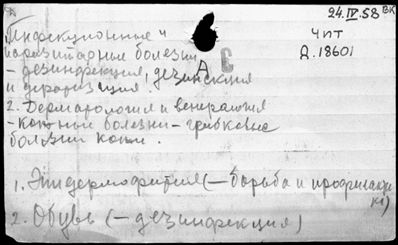 24.IV.58 ВК
Инфекционные и
Чит
паразитарные болезни
Д.18601
– дезинфекция, дезинсекция
и дератизация.
2. Дерматология и венерология
– кожные болезни – грибковые
болезни кожи.
1. Эпидермофития (– борьба и профилакти
ка)
2. Обувь (– дезинфекция)